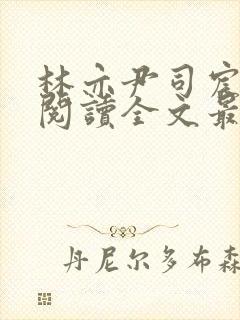 林亦尹司宸
閱讀全文最
丹尼尔多布森